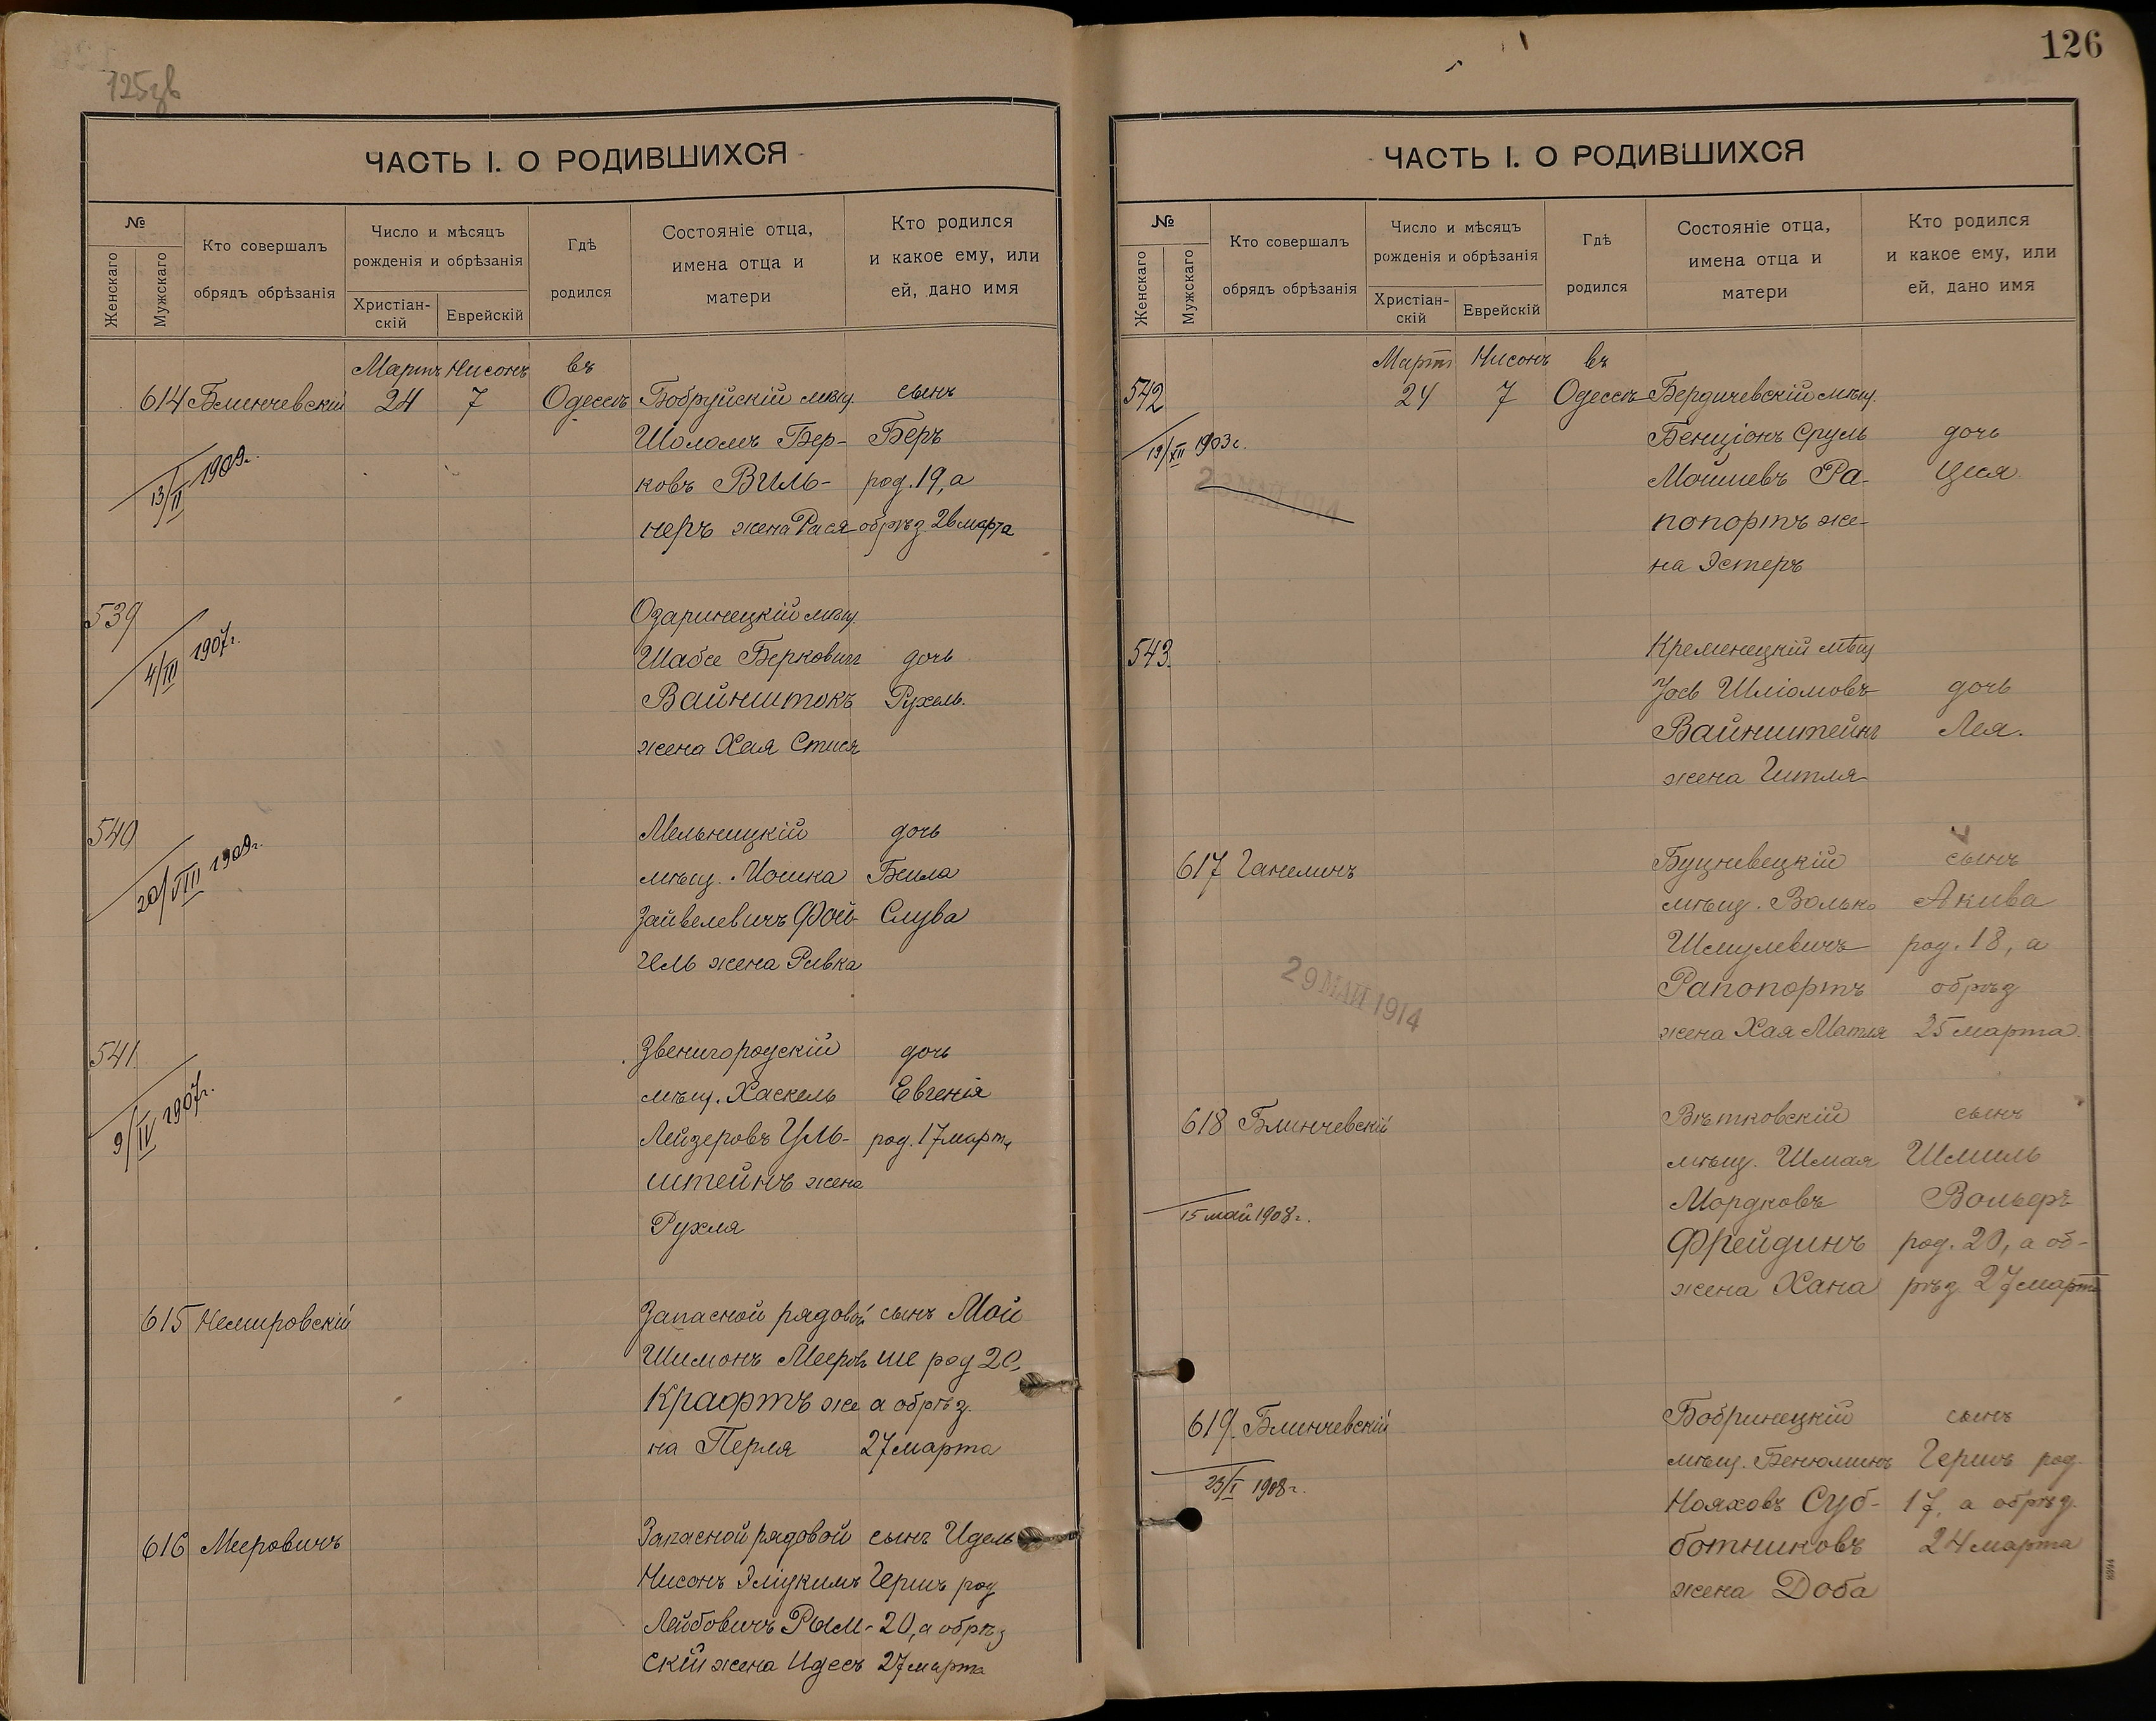 125зв
ЧАСТЬ I. О РОДИВШИХСЯ
№
Женскаго
Мужскаго
Кто совершалъ
обрядъ обрѣзанія
Число и мѣсяцъ
рожденія и обрѣзанія
Христіан-
скій
Еврейскій
Гдѣ
родился
Состояніе отца,
имена отца и
матери
Кто родился
и какое ему, или
ей, дано имя
Мартъ Нисонъ въ
614 Блинчевскій 24 7 Одессѣ Бобруйскій мѣщ. сынъ
Шоломъ Бер- Беръ
ковъ Виль- род. 19, а
неръ жена Рася обрѣз. 26 марта
13/II 1909г.
539 Озаринецкій мѣщ.
Шабсе Берковичъ дочь
Вайнштокъ Рухель.
жена Хая Стися
4/III 1907г.
540 Мельницкій дочь
мѣщ. Иосика Бейла
Зайвелевичъ Фой- Слува
гель жена Ривка
20/VIII 1909г.
541 Звенигородскій дочь
мѣщ. Хаскель Евгенія
Лейзеровъ Уль- род. 17 марта
штейнъ жена
Рухля
9/IV 1907г.
615 Немировскій Запасной рядовой сынъ Мой
Шимонъ Мееровъ ше род 20,
Крафтъ же а обрѣз.
на Перля 27 марта
616 Мееровичъ Запасной рядовой сынъ Идель
Нисонъ Эліукимъ Гершъ род
Лейбовичъ Рым- 20, а обрѣз
скій жена Идесъ 27 марта
126
ЧАСТЬ I. О РОДИВШИХСЯ
№
Женскаго
Мужскаго
Кто совершалъ
обрядъ обрѣзанія
Число и мѣсяцъ
рожденія и обрѣзанія
Христіан-
скій
Еврейскій
Гдѣ
родился
Состояніе отца,
имена отца и
матери
Кто родился
и какое ему, или
ей, дано имя
Мартъ Нисонъ въ
542 24 7 Одессѣ Бердичевскій мѣщ.
Бенціонъ Сруль дочь
Мошиевъ Ра- Цися
попортъ же-
на Эстеръ
19/XII 1903г.
2 МАЙ 1914
543. Кременецкій мѣщ
Іось Шліомовъ дочь
Вайнштейнъ Лея.
жена Гитля
617 Ганелинъ Буцневецкій сынъ
мѣщ. Волько Акива
Шмулевичъ род. 18, а
Рапопортъ обрѣз
жена Хая Матля 25 марта.
29 МАЙ 1914
618 Блинчевскій Вѣтковскій сынъ
мѣщ. Шмая Шмиль
Мордковъ Вольфъ
Фрейдинъ род. 20, а об-
жена Хана рѣз 27 марта
15 май 1908г.
619. Блинчевскій Бобринецкій сынъ
мѣщ. Бенюминъ Гершъ род.
Нояховъ Суб- 17, а обрѣз.
ботниковъ 24 марта
жена Доба
23/I 1908г.